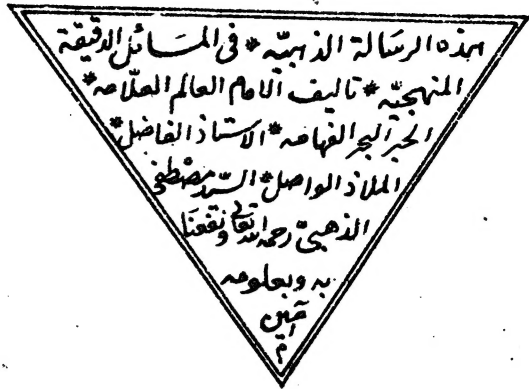 هذه الرسالة الذهبيه * فى المسائل الدقيقة
المنهجيّه * تأليف الامام العالم العلّامه *
الحبر البحر الفهامه * الاستاذ الفاضل *
الملاذ الواصل * السيّد مصطفى
الذهبىّ رحمه الله تعالى ونفعنا
به وبعلومه
آمين
م